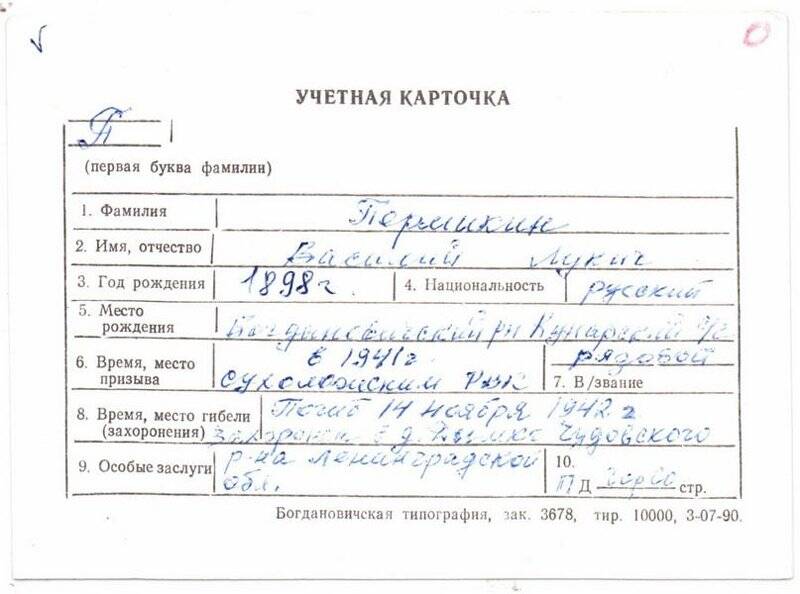 УЧЕТНАЯ КАРТОЧКА
П
(первая буква фамилии)
1. Фамилия Пермикин
2. Имя, отчество Василий Лукич
3. Год рождения 1898 г. 4. Национальность русский
5. Место рождения Богдановичский рн Кунарский с/с
6. Время, место призыва в 1941 г Сухоложским РВК 7. В/звание рядовой
8. Время, место гибели (захоронения) Погиб 14 ноября 1942 г
захоронен в д. Чудовского
9. Особые заслуги р-на Ленинградской обл. 10. П Д стр.
Богдановичская типография, зак. 3678, тир. 10000, 3-07-90.